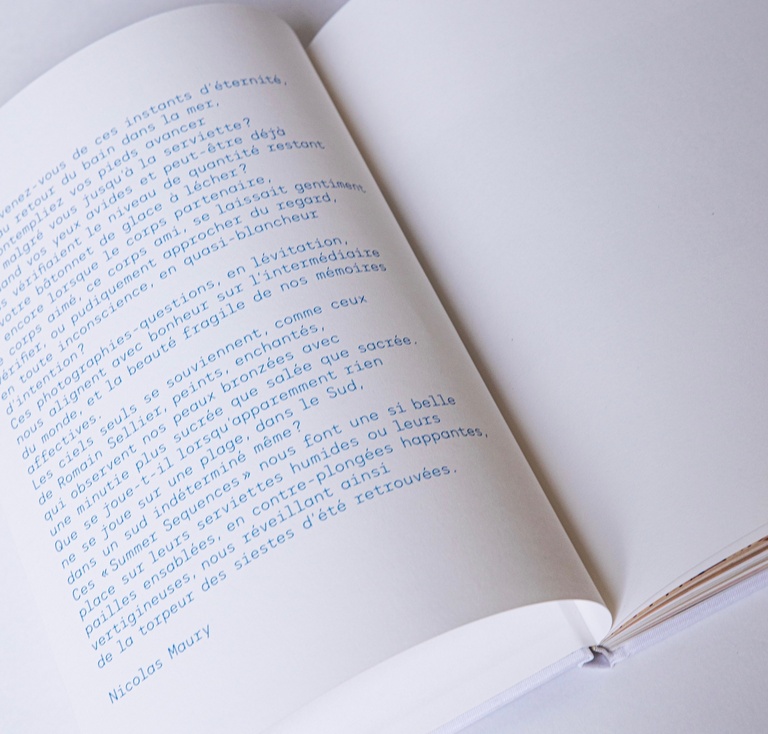 venez-vous de ces instants d'éternité,
au retour du bain dans la mer,
ontempliez vos pieds avancer
malgré vous jusqu'à la serviette?
and vos yeux avides et peut-être déjà
s vérifiaient le niveau de quantité restant
votre bâtonnet de glace à lécher?
encore lorsque le corps partenaire,
corps aimé, ce corps ami, se laissait gentiment
vérifier, ou pudiquement approcher du regard,
en toute inconscience, en quasi-blancheur
d'intention?
Ces photographies-questions, en lévitation,
nous alignent avec bonheur sur l'intermédiaire
du monde, et la beauté fragile de nos mémoires
affectives.
Les ciels seuls se souviennent, comme ceux
de Romain Sellier, peints, enchantés,
qui observent nos peaux bronzées avec
une minutie plus sucrée que salée que sacrée.
Que se joue-t-il lorsqu'apparemment rien
ne se joue sur une plage, dans le Sud,
dans un sud indéterminé même?
Ces «Summer Sequences» nous font une si belle
place sur leurs serviettes humides ou leurs
pailles ensablées, en contre-plongées happantes,
vertigineuses, nous réveillant ainsi
de la torpeur des siestes d'été retrouvées.
Nicolas Maury